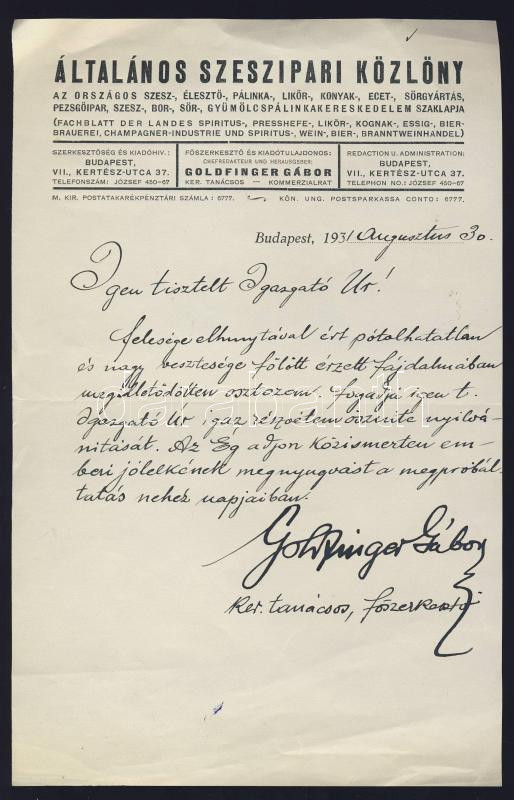 ÁLTALÁNOS SZESZIPARI KÖZLÖNY
AZ ORSZÁGOS SZESZ-, ÉLESZTŐ-, PÁLINKA-, LIKŐR-, KONYAK-, ECET-, SÖRGYÁRTÁS,
PEZSGŐIPAR, SZESZ-, BOR-, SÖR-, GYÜMÖLCSPÁLINKAKERESKEDELEM SZAKLAPJA
(FACHBLATT DER LANDES SPIRITUS-, PRESSHEFE-, LIKÖR-, KOGNAK-, ESSIG-, BIER-
BRAUEREI, CHAMPAGNER-INDUSTRIE UND SPIRITUS-, WEIN-, BIER-, BRANNTWEINHANDEL)
SZERKESZTŐSÉG ÉS KIADÓHIV.:
BUDAPEST,
VII., KERTÉSZ-UTCA 37.
TELEFONSZÁM: JÓZSEF 450-67
FŐSZERKESZTŐ ÉS KIADÓTULAJDONOS:
CHEFREDAKTEUR UND HERAUSGEBER:
GOLDFINGER GÁBOR
KER. TANÁCSOS — KOMMERZIALRAT
REDACTION U. ADMINISTRATION:
BUDAPEST,
VII., KERTÉSZ-UTCA 37.
TELEPHON NO.: JÓZSEF 450-67
M. KIR. POSTATAKARÉKPÉNZTÁRI SZÁMLA: 6777. KÖN. UNG. POSTSPARKASSA CONTO: 6777.
Budapest, 1931 Augusztus 30.
Igen tisztelt Igazgató Úr!
felesége elhunytával ért pótolhatatlan
és nagy vesztesége fölött érzett fájdalmában
megilletődötten osztozom, fogadja igen t.
Igazgató Úr igaz részvétem őszinte nyilvá-
nitását. Az Ég adjon közismerten em-
beri jólelkének megnyugvást a megpróbál-
tatás nehéz napjaiban.
Goldfinger Gábor
ker. tanácsos, főszerkesztő
darabanth